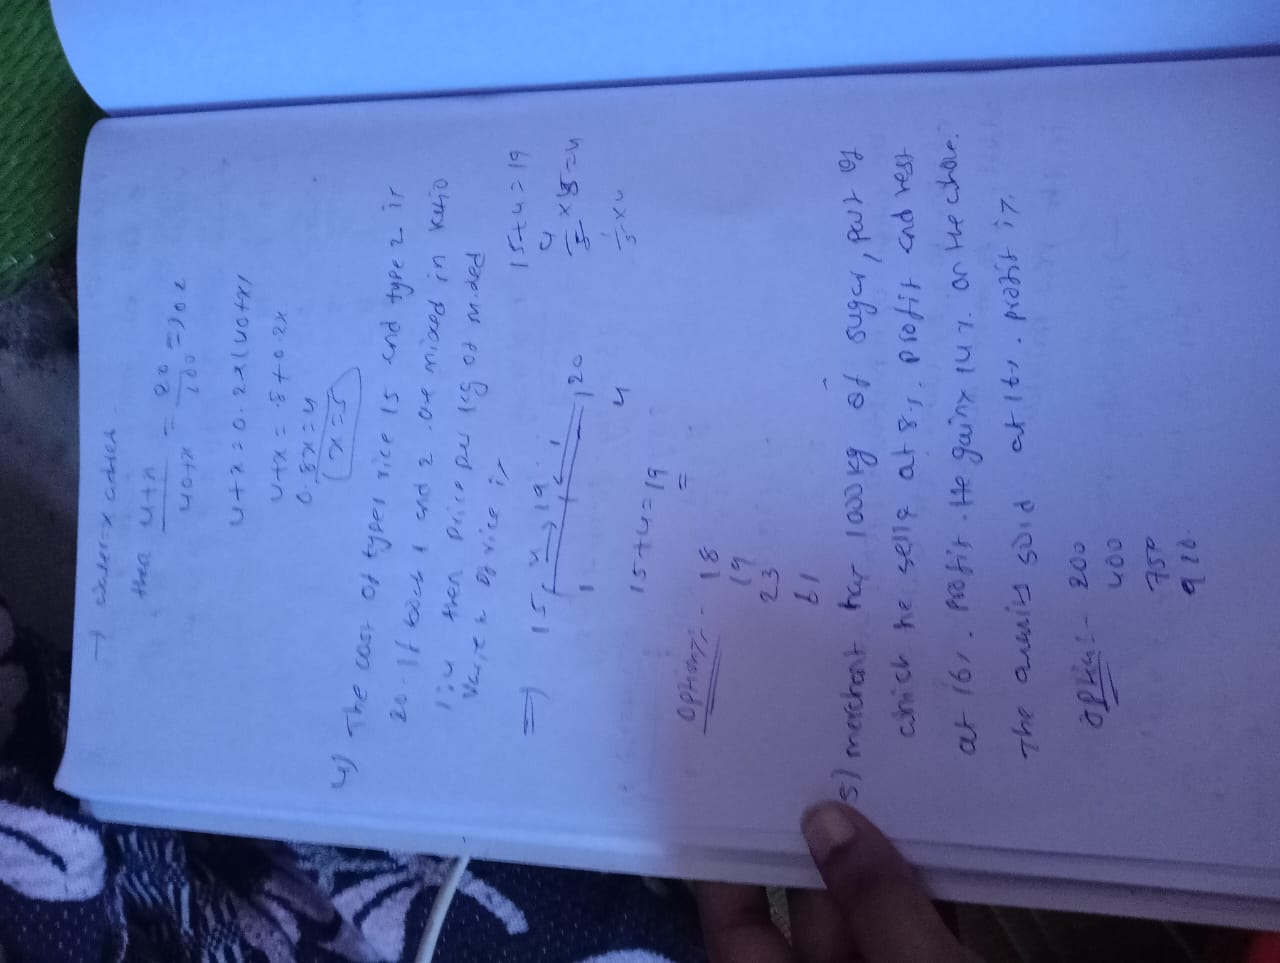 → water = x added
then 4+x / 40+x = 20/100 => 0.2
4+x = 0.2x(40+x)
4+x = 8+0.2x
0.8x = 4
x=5
4) The cost of type 1 rice 15 and type 2 is
20. If both 1 and 2 are mixed in ratio
1:4 then price per kg of mixed
rice is
⇒ 15 4 → 19 ← 1 20
1 4
15+4=19
4/5 x 5 = 4
1/5 x 4
15+4=19
options:- 18
19
23
61
5) merchant has 1000 kg of sugar, part of
which he sells at 8%. profit and rest
at 16%. profit. He gains 14%. on the whole.
The quantity sold at 16%. profit is.
option:- 200
400
750